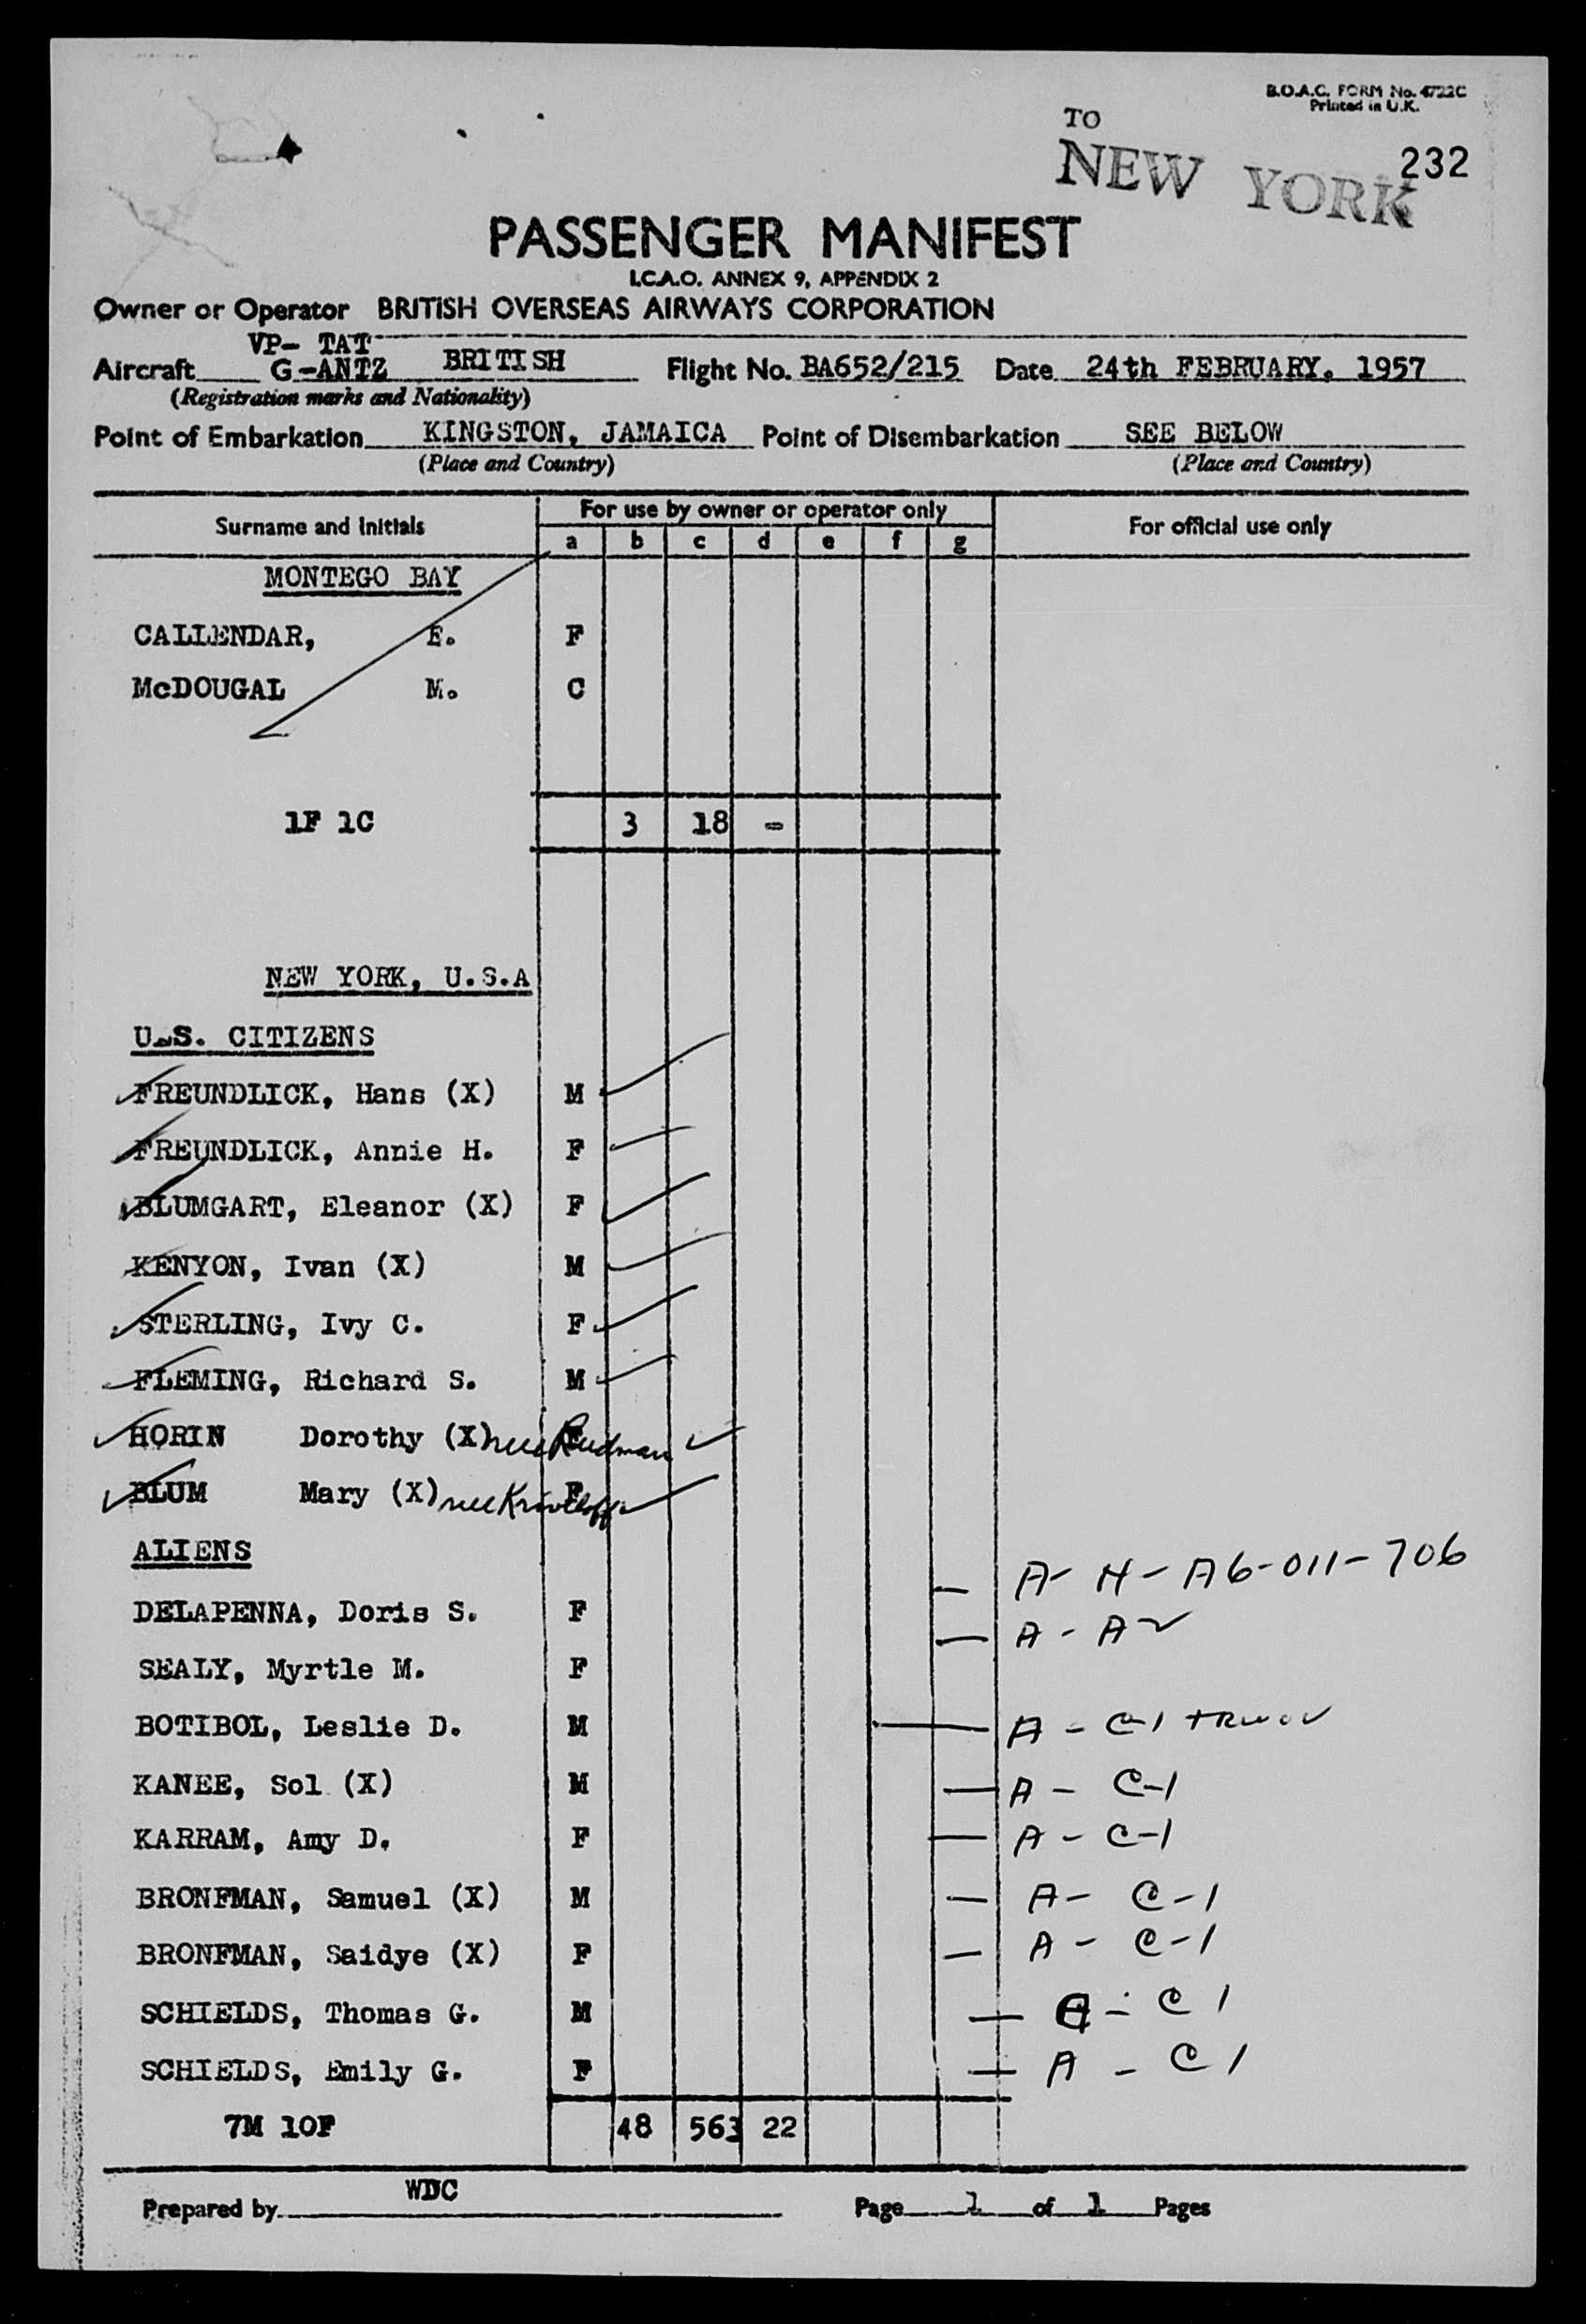 B.O.A.C. FORM No. 4722C
Printed in U.K.
TO
NEW YORK
232
PASSENGER MANIFEST
I.C.A.O. ANNEX 9, APPENDIX 2
Owner or Operator BRITISH OVERSEAS AIRWAYS CORPORATION
VP- TAT
Aircraft G-ANTZ BRITISH Flight No. BA652/215 Date 24th FEBRUARY. 1957
(Registration marks and Nationality)
Point of Embarkation KINGSTON, JAMAICA Point of Disembarkation SEE BELOW
(Place and Country) (Place and Country)
Surname and Initials For use by owner or operator only For official use only
a b c d e f g
MONTEGO BAY
CALLENDAR, E. F
McDOUGAL M. C
1F 1C 3 18 -
NEW YORK, U.S.A
U.S. CITIZENS
FREUNDLICK, Hans (X) M
FREUNDLICK, Annie H. F
BLUMGART, Eleanor (X) F
KENYON, Ivan (X) M
STERLING, Ivy C. F
FLEMING, Richard S. M
HORIN Dorothy (X) nee F
BLUM Mary (X) nee F
ALIENS
A- H - A6-011-706
DELAPENNA, Doris S. F
A - A
SEALY, Myrtle M. F
BOTIBOL, Leslie D. M A - C-1
KANEE, Sol (X) M A - C-1
KARRAM, Amy D. F A - C-1
BRONFMAN, Samuel (X) M A - C-1
BRONFMAN, Saidye (X) F A - C-1
SCHIELDS, Thomas G. M - C 1
SCHIELDS, Emily G. F A - C 1
7M 10F 48 563 22
Prepared by WDC Page 1 of 1 Pages